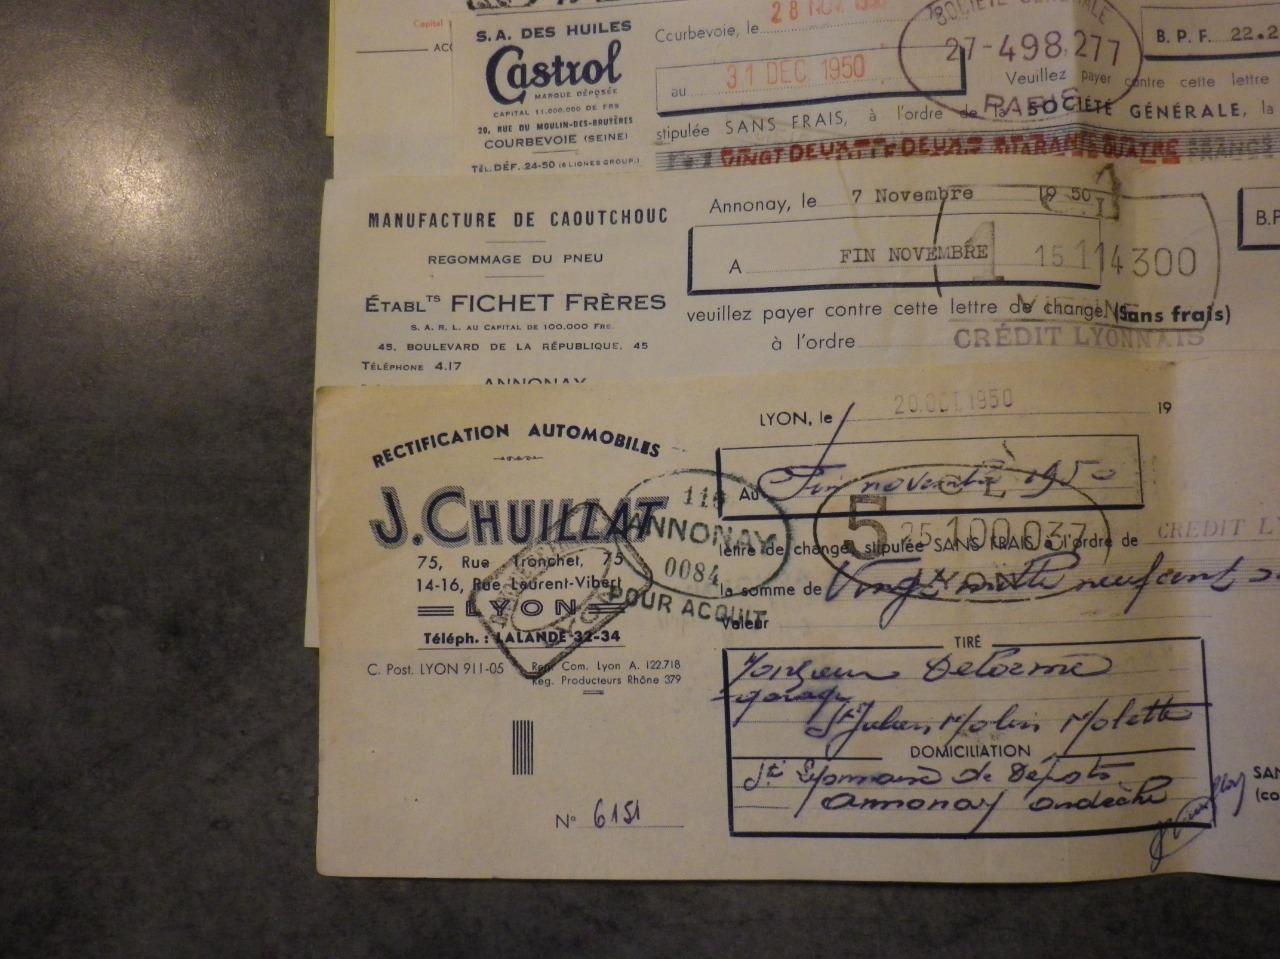 Capital
S.A. DES HUILES
Castrol
MARQUE DÉPOSÉE
CAPITAL 11.000.000 DE FRS
20, RUE DU MOULIN-DES-BRUYÈRES
COURBEVOIE (SEINE)
TÉL. DÉF. 24-50 (6 LIGNES GROUP.)
Courbevoie, le 28 NOV 1950
au 31 DEC 1950
SOCIÉTÉ GÉNÉRALE
27-498.277
PARIS
B. P. F. 22.2
Veuillez payer contre cette lettre
stipulée SANS FRAIS, à l'ordre de la SOCIÉTÉ GÉNÉRALE, la
VINGT DEUX MILLE DEUX QUARANTE QUATRE FRANCS
MANUFACTURE DE CAOUTCHOUC
REGOMMAGE DU PNEU
ÉTABLTS FICHET FRÈRES
S. A. R. L. AU CAPITAL DE 100.000 FRS.
45, BOULEVARD DE LA RÉPUBLIQUE, 45
TÉLÉPHONE 4.17
ANNONAY
Annonay, le 7 Novembre 19 50
A FIN NOVEMBRE
15 114300
B.P
veuillez payer contre cette lettre de change (Sans frais)
à l'ordre CRÉDIT LYONNAIS
RECTIFICATION AUTOMOBILES
J. CHUILLAT
75, Rue Tronchet, 75
14-16, Rue Laurent-Vibert
LYON
Téléph. : LALANDE 32-34
C. Post. LYON 911-05
Reg. Com. Lyon A. 122.718
Reg. Producteurs Rhône 379
N° 6151
116
ANNONAY
0084
POUR ACQUIT
LYON, le 20 OCT 1950 19
Au Fin novembre 1950
5 25 100.037
LYON
lettre de change, stipulée SANS FRAIS à l'ordre de CREDIT L
la somme de Vingt mille neuf cent
Valeur
TIRÉ
Monsieur Delorme
garage
St Julien Molin Molette
DOMICILIATION
de Dépots
Annonay Ardèche
SAN
(co